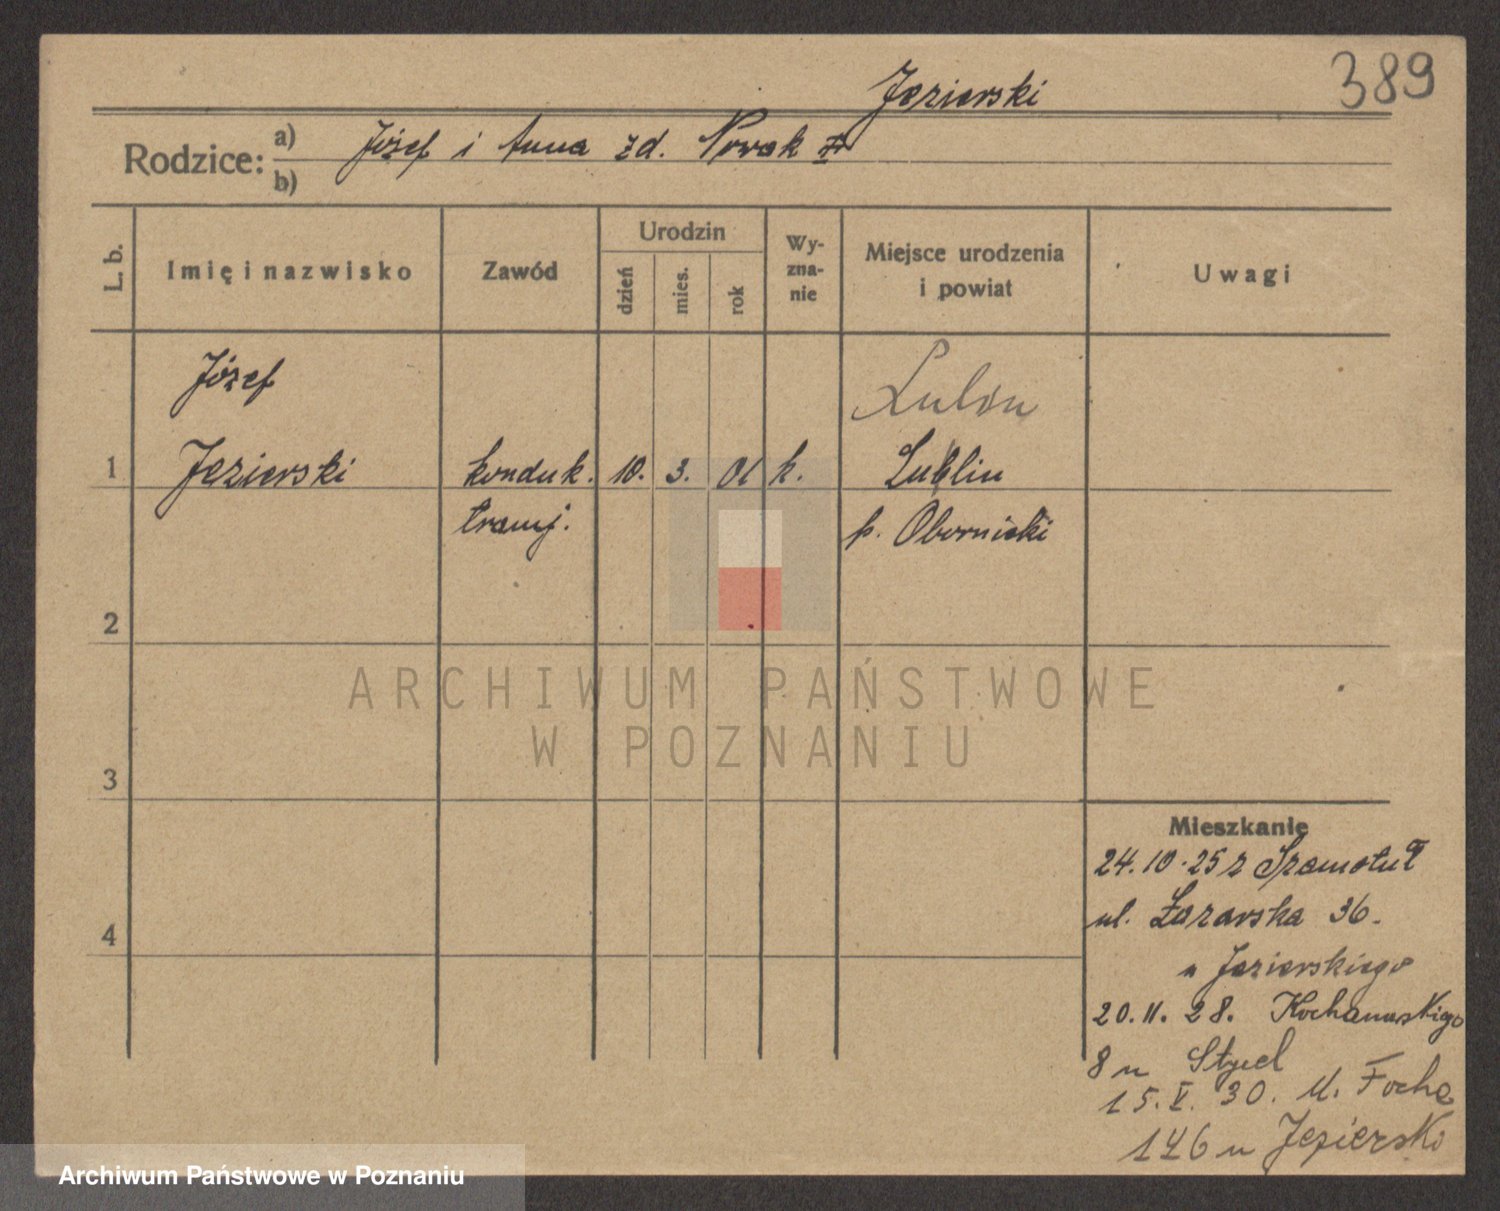 389
Jezierski
Rodzice: a) Józef i Anna zd. Nowak
b)
L. b. Imię i nazwisko Zawód Urodzin dzień mies. rok Wy-zna-nie Miejsce urodzenia i powiat Uwagi
Józef Lulin
1 Jezierski konduk. 10. 3. 01 k. Lublin
tramj. p. Obornicki
2
3
4
Mieszkanie
24.10.25 z Szamotuł
ul. Łazarska 36.
u Jezierskiego
20.11.28. Kochanowskigo
8 u
15.V.30. M. Focha
146 u Jezierski
ARCHIWUM PAŃSTWOWE
W POZNANIU
Archiwum Państwowe w Poznaniu